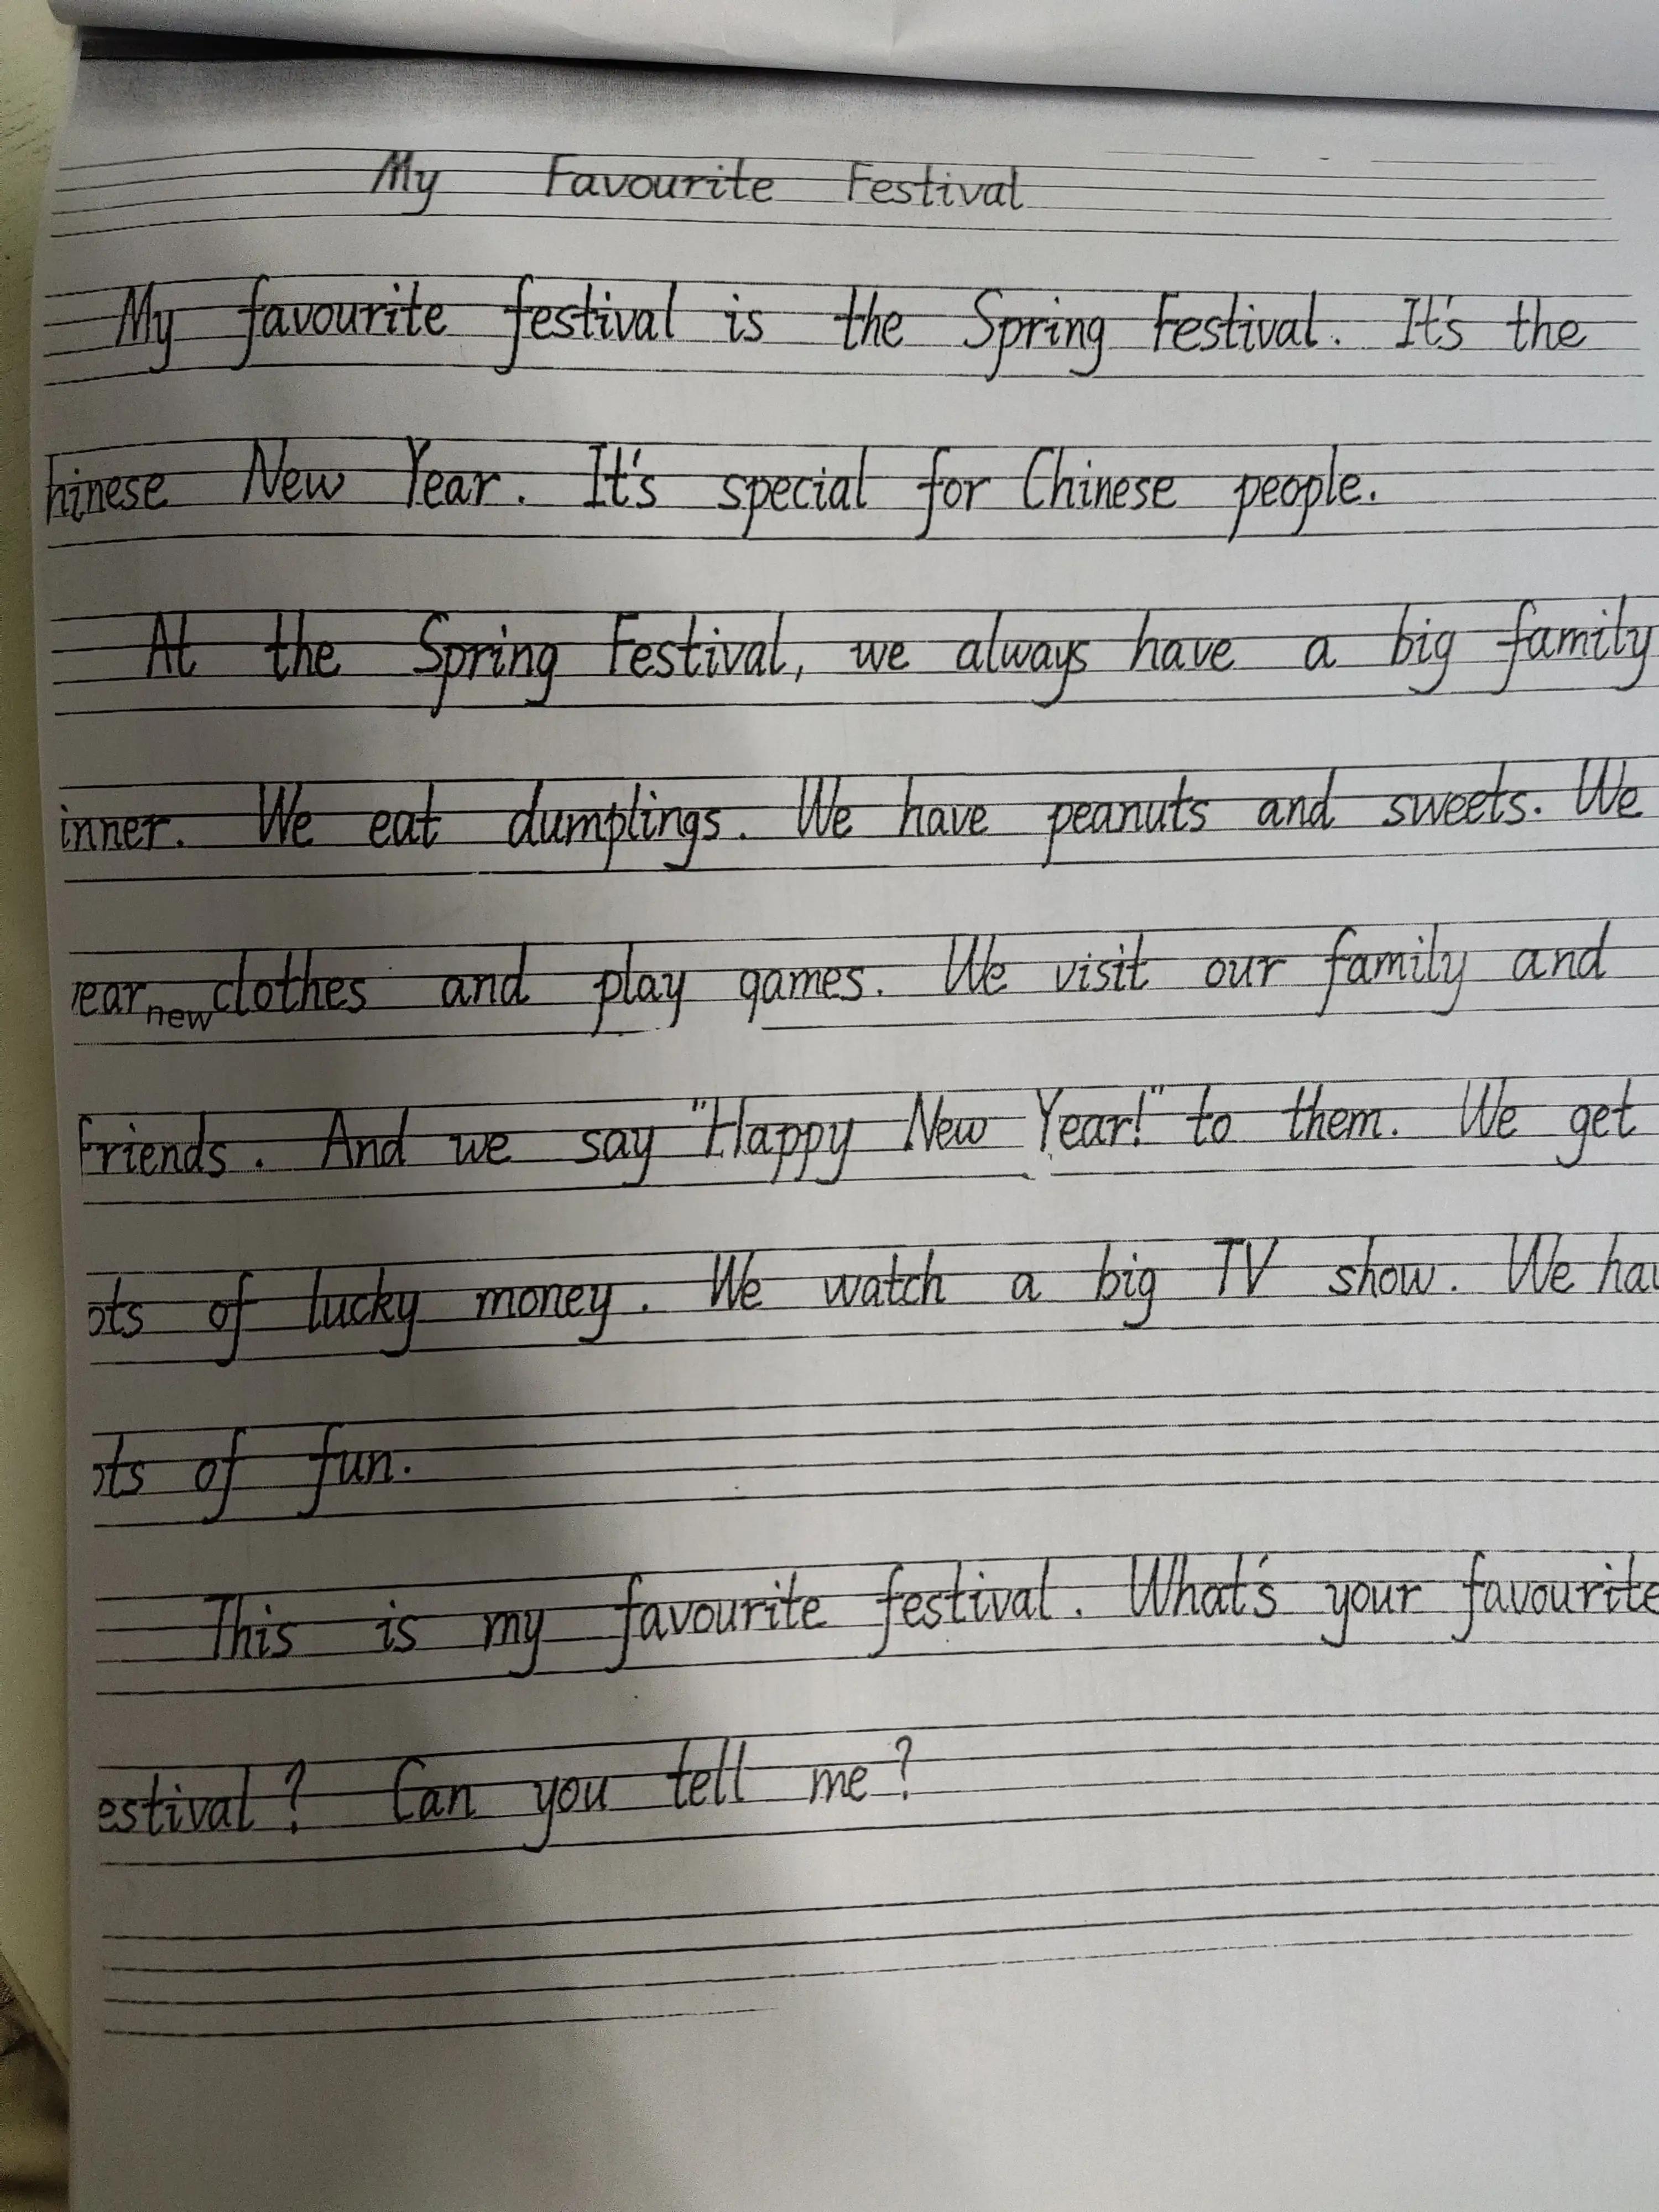 My Favourite Festival
My favourite festival is the Spring Festival. It's the
hinese New Year. It's special for Chinese people.
At the Spring Festival, we always have a big family
inner. We eat dumplings. We have peanuts and sweets. We
ear new clothes and play games. We visit our family and
friends. And we say "Happy New Year!" to them. We get
ots of lucky money. We watch a big TV show. We hav
ots of fun.
This is my favourite festival. What's your favourite
estival? Can you tell me?